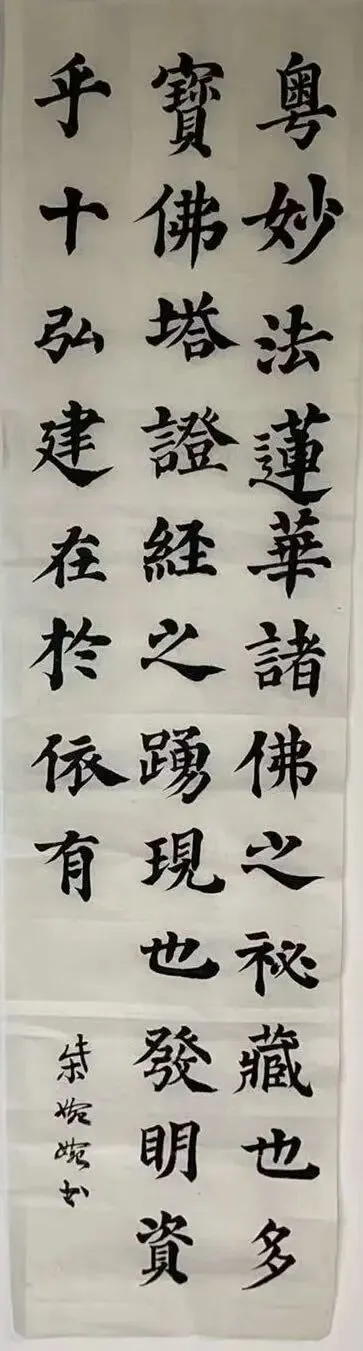 粤妙法蓮華諸佛之祕藏也多
寶佛塔證経之踴現也發明資
乎十弘建在於依有
朱婉婉书